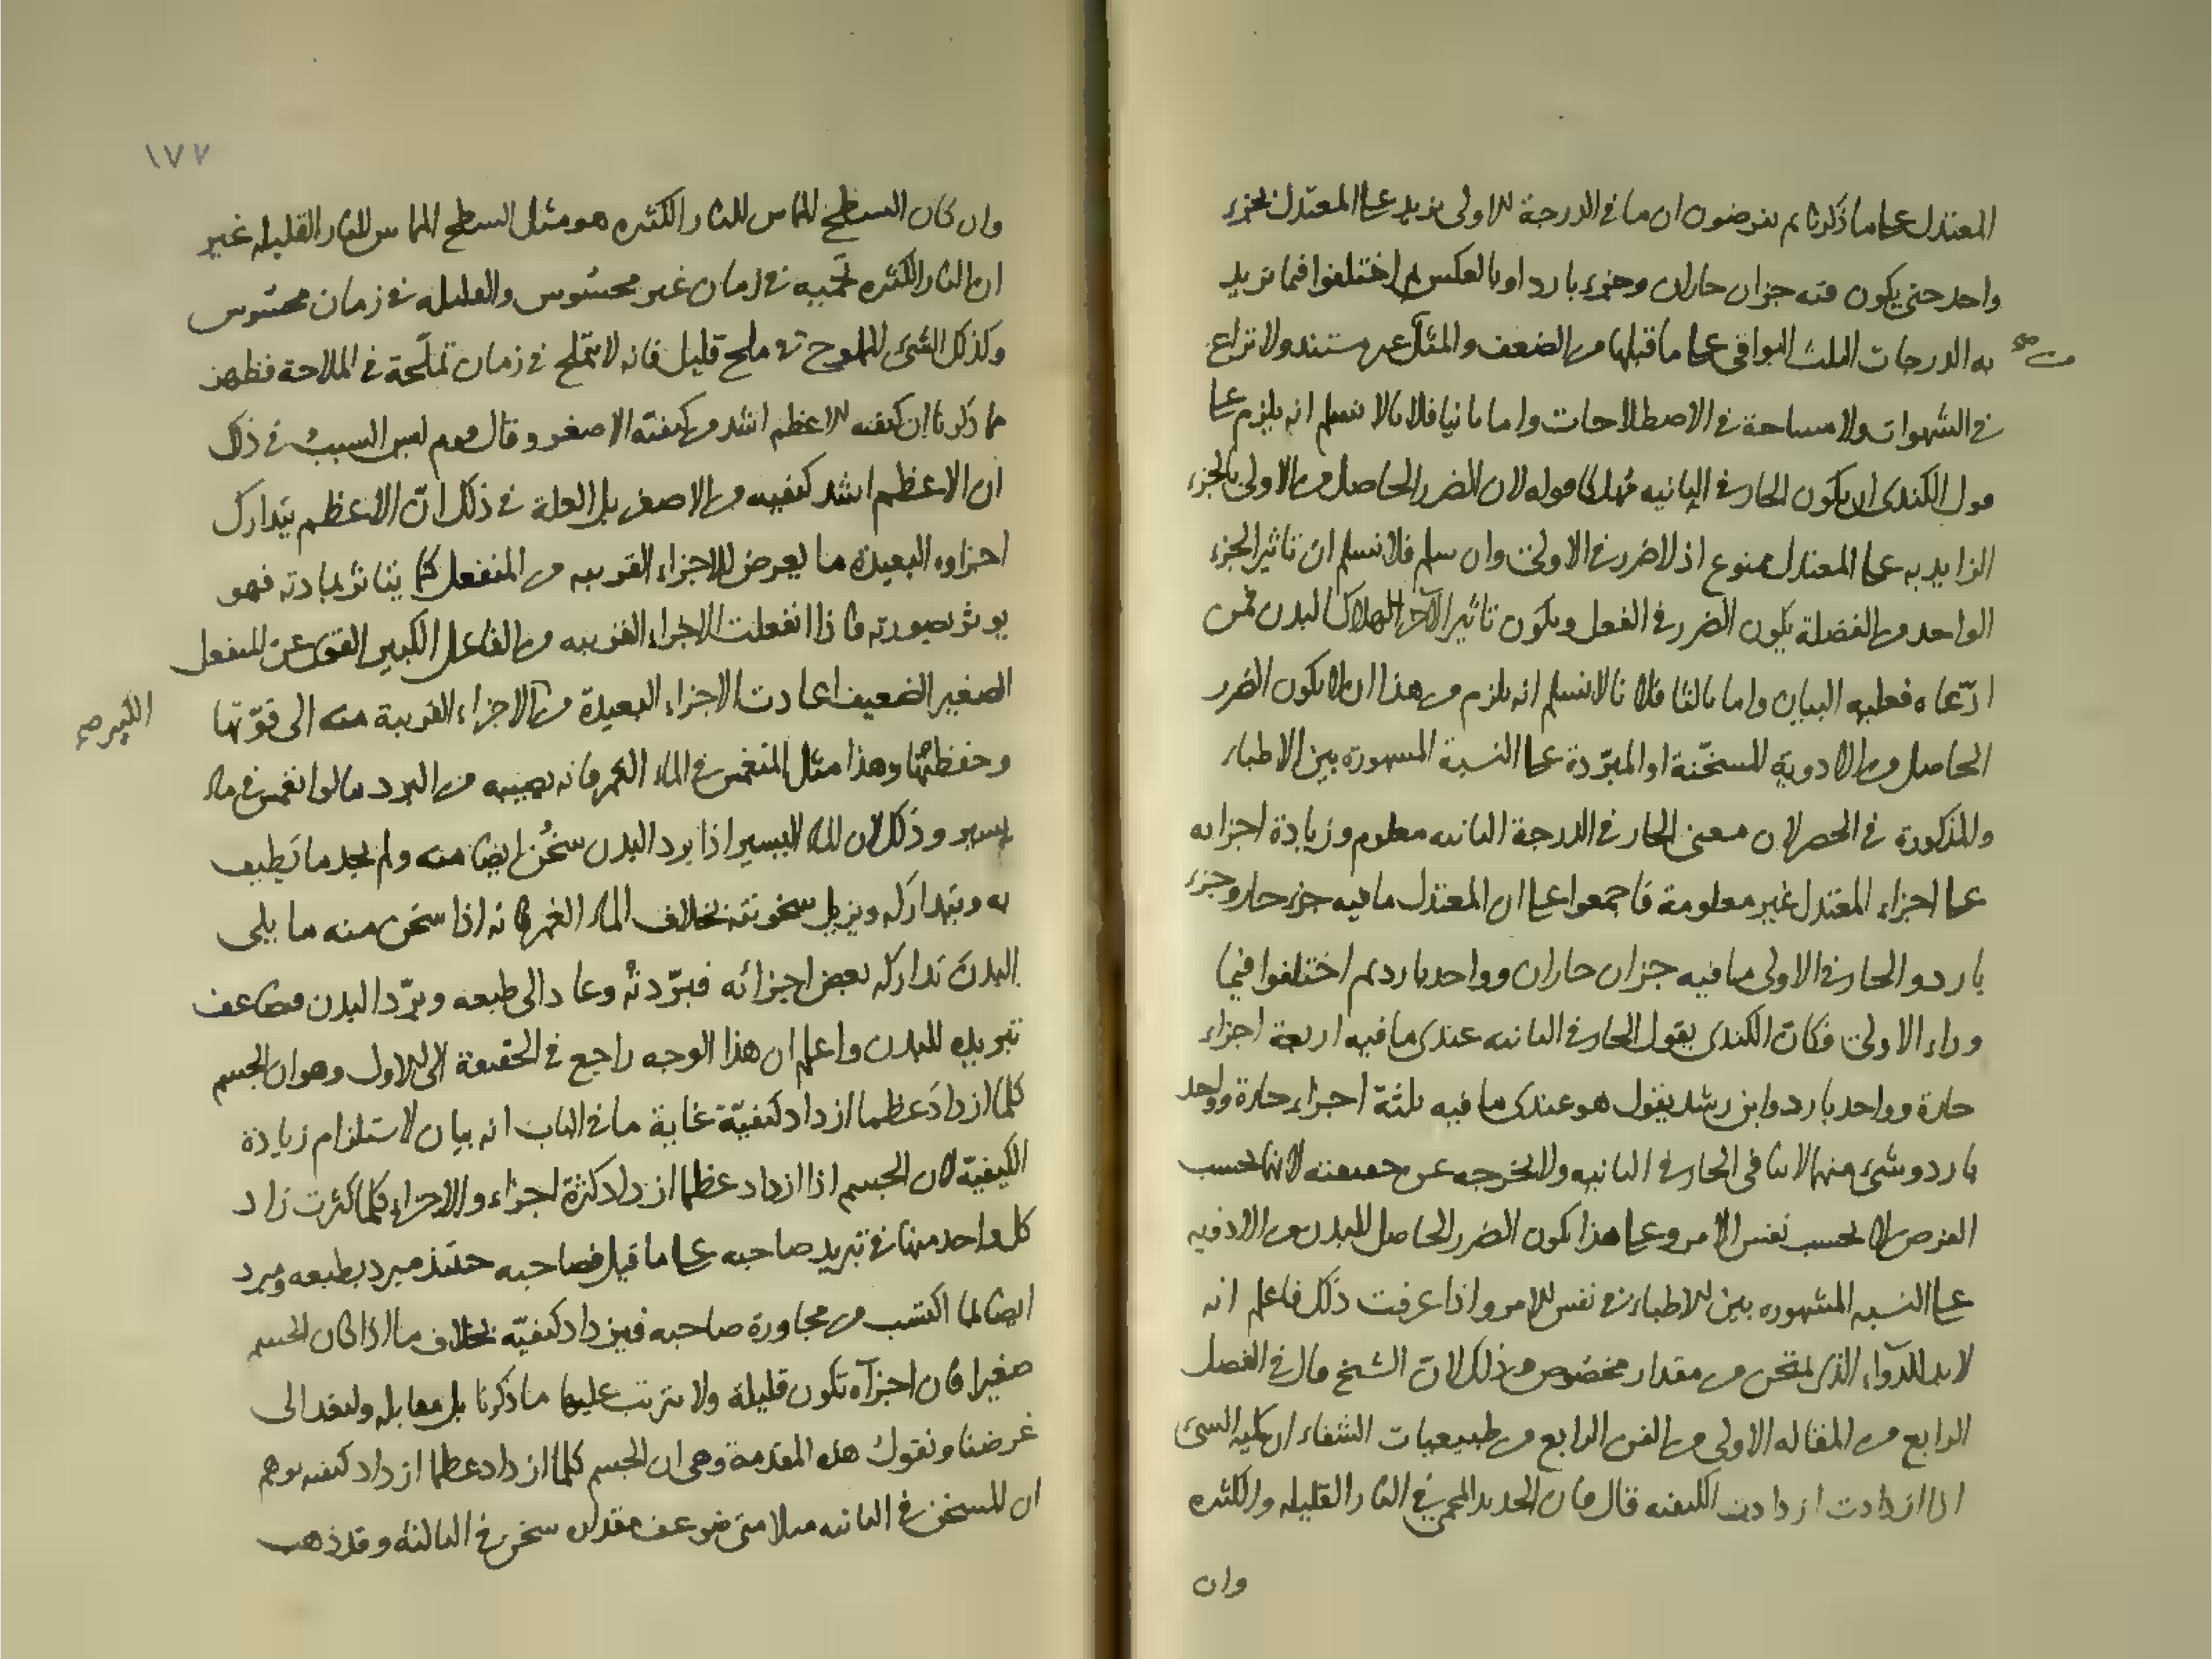 المعتدل على ما ذكرنا ثم يفرضون ان ما في الدرجة الاولى يزيد على المعتدل بجزء
واحد حتى يكون فيه جزان حاران وجزء بارد او بالعكس ثم اختلفوا فيما تزيد
به الدرجات الثلث البواقي على ما قبلها من الضعف والمثل من مستند ولا نزاع
في الشهوات ولا مساحة في الاصطلاحات واما ثانيا فلانا لا نسلم انه يلزم على
قول الكندي ان يكون الحار في الثانيه مهلكا قوله لان الضرر الحاصل من الاولى بالجزء
الزايد به على المعتدل ممنوع اذ لا ضرر في الاولى وان سلم فلا نسلم ان تاثير الجزء
الواحد من الفضلة يكون الضرر في الفعل ويكون تاثير الآخر اهلاك البدن فمن
ادّعاه فعليه البيان واما ثالثا فلانا لا نسلم انه يلزم من هذا ان لا يكون الضرر
الحاصل من الادوية المسخّنة او المبرّدة على النسبة المشهورة بين الاطباء
والمذكورة في الحصر لان معنى الحار في الدرجة الثانيه معلوم وزيادة اجزائه
على اجزاء المعتدل غير معلومة فاجمعوا على ان المعتدل ما فيه جزء حار وجزء
بارد والحار في الاولى ما فيه جزان حاران وواحد بارد ثم اختلفوا فيما
وراء الاولى فكانّ الكندي يقول الحار في الثانيه عندي ما فيه اربعة اجزاء
حارة وواحد بارد وابن رشد يقول هو عندي ما فيه ثلثة اجزاء حارة وواحد
بارد وشيء منهما لا ينافي الحار في الثانيه ولا يخرجه عن حقيقته لانهما بحسب
الفرض لا بحسب نفس الامر وعلى هذا يكون الضرر الحاصل للبدن من الادويه
على النسبه المشهوره بين الاطباء في نفس الامر واذا عرفت ذلك فاعلم انه
لا بد للدّواء الذي يمتحن من مقدار مخصوص وذلك لانّ الشيخ قال في الفصل
الرابع من المقاله الاولى من الفن الرابع من طبيعيات الشفاء ان كليه الشيء
اذا ازدادت ازدادت الكيفيه قال فان الحديد المحمى في النار القليله والكثيره
وان
١٧٧
وان كان السطح المماس للنار الكثيره هو مثل السطح المماس للنار القليله غير
ان النار الكثيره تحميه في زمان غير محسوس والقليله في زمان محسوس
وكذلك الشيء المطروح في ملح قليل فانه لا يتملح في زمان تملّحه في الملاحة فظهر
مما ذكرنا ان كيفيه الاعظم اشد من كيفيه الاصغر وقال قوم ليس السبب في ذلك
ان الاعظم اشد كيفيه من الاصغر بل العلة في ذلك انّ الاعظم يتدارك
اجزاوه البعيدة ما يعرض للاجزاء القريبه من المنفعل كما يتاثر بمادته فهو
يوثر بصورته فاذا انفعلت الاجزاء القريبه من الفاعل الكبير القوى عن المنفعل
الصغير الضعيف اعادت الاجزاء البعيدة من الاجزاء القريبة منه الى قوّتها
الكبير صح
وحفظتها وهذا مثل المنغمس في الماء الغمر فانه يصيبه من البرد ما لو انغمس في ماء
يسير وذلك لان الماء اليسير اذا برد البدن سخُن ايضا منه ولم يجد ما يطيف
به ويتداركه ويزيل سخونته بخلاف الماء الغمر فانه اذا سخن منه ما يلي
البدن تداركه بعض اجزائه فبرّدته وعاد الى طبعه وبرّد البدن فتضاعف
تبريده للبدن واعلم ان هذا الوجه راجع في الحقيقة الى الاول وهو ان الجسم
كلما ازداد عظما ازداد كيفيّة غاية ما في الباب انه بيان لاستلزام زيادة
الكيفيّة لان الجسم اذا ازداد عظما ازداد كثرة اجزاء والاجزاء كلما كثرت زاد
كل واحد منها في تبريد صاحبه على ما قيل فصاحبه حينئذ مبرد بطبعه ومبرد
ايضا لما اكتسب من مجاورة صاحبه فيزداد كيفيّه بخلاف ما اذا كان الجسم
صغيرا فان اجزآه تكون قليلة ولا يترتب عليها ما ذكرنا بل مقابله ولنعد الى
غرضنا ونقول هذه المقدمة وهي ان الجسم كلما ازداد عظما ازداد كيفيه توهم
ان المسخن في الثانيه مثلا متى ضوعف مقداره سخن في الثالثة وقد ذهب